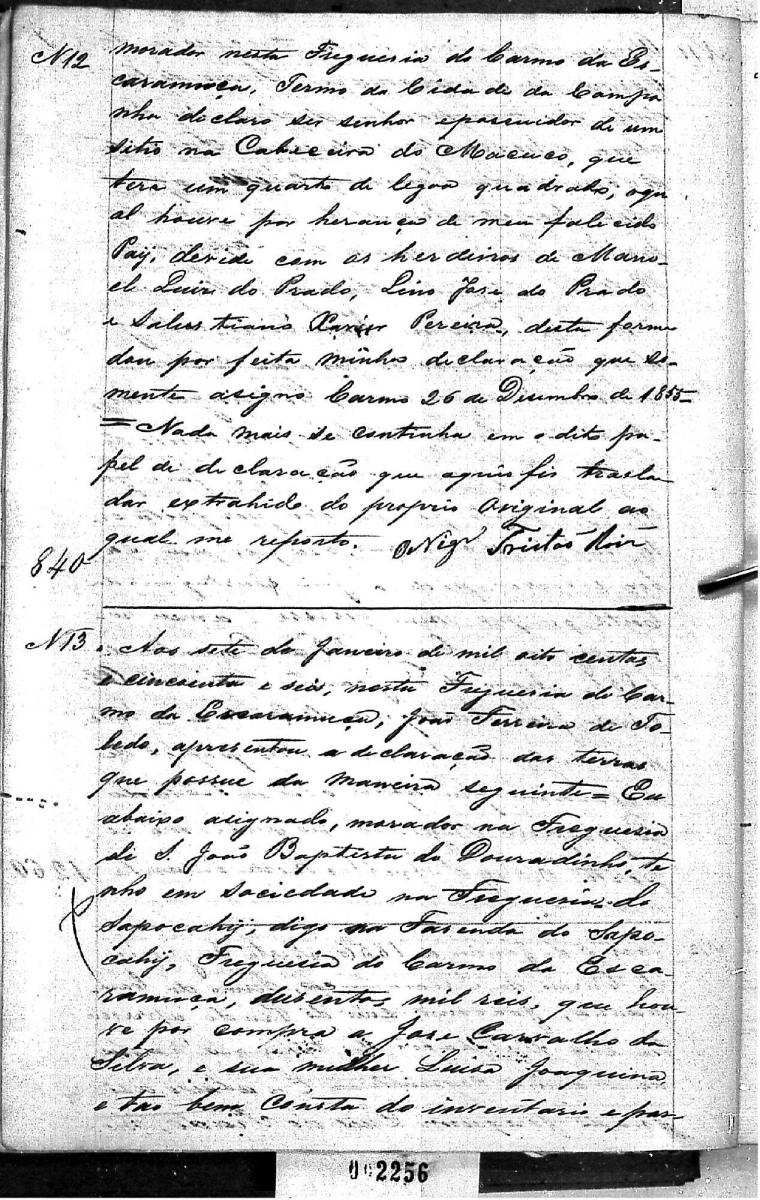 N12 morador nesta Freguesia do Carmo da Es-
caramuça, Termo da Cidade da Campa
nha declaro ser senhor epossuidor de um
sitio na Cabiceira do Macuco, que
tera um quarto de legoa quadrado, oqu
al houve por herança de meu falecido
Pay, devide com os herdeiros de Mano-
el Luiz do Prado, Lino Jose do Prado
e Salustiano Xavier Pereira, desta forma
dou por feita minha declaração que so-
mente asigno Carmo 26 de Disembro de 1855-
= Nada mais se continha em o dito pa-
pel de declaração que aqui fis trasla
dar extrahido do proprio Original ao
qual me reporto. O Vigr
840
N13. Aos sete de Janeiro de mil oito centos
e cincoenta e seis, nesta Freguesia do Car-
mo da Escaramuça, João Ferreira de To-
ledo, apresentou a declaração das terras
que possue da maneira seguinte = Eu
abaixo asignado, morador na Freguesia
de S. João Baptista do Douradinho, te
nho em sociedade na Freguesia do
Sapocahy, digo na Fazenda do Sapo-
cahy, Freguesia do Carmo da Esca-
ramuça, dusentos mil reis, que hou-
ve por compra a Jose Carvalho da
Silva, e sua mulher Luisa Joaquina
e tão bem consta do inventario e par-
2256